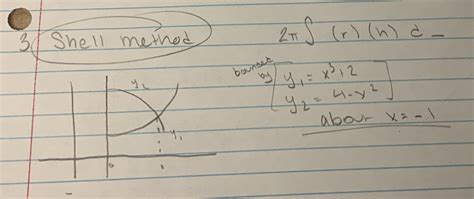 3. Shell method
2π∫ (r) (h) d_
bounded by
y₁ = x³+2
y₂ = 4-x²
about x = -1
y₂
y₁